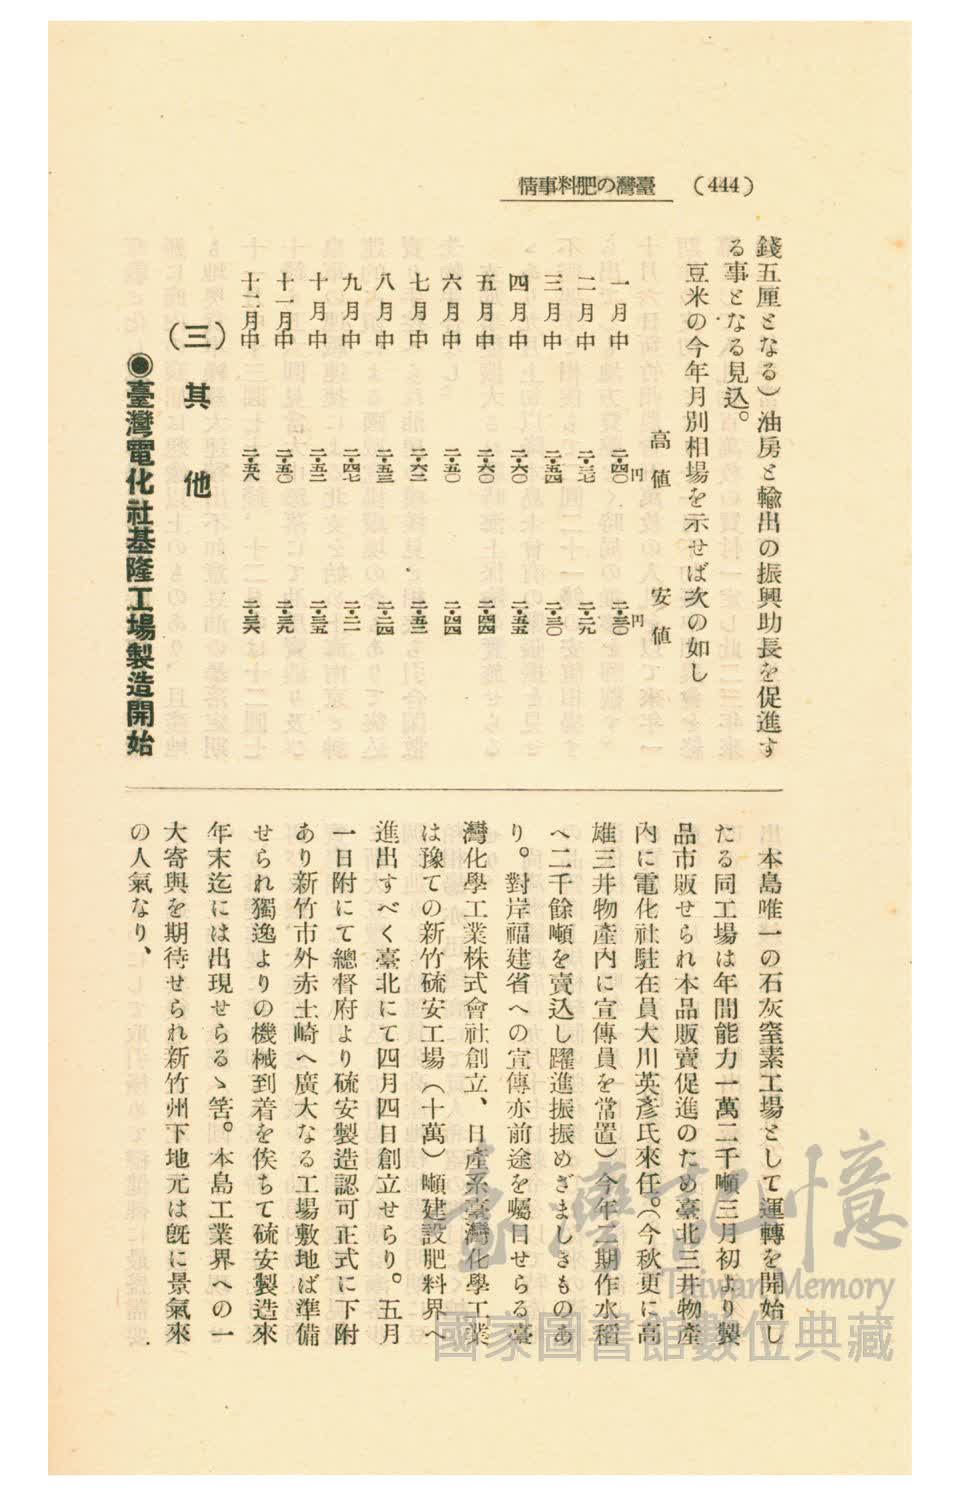 (444) 臺灣の肥料事情
錢五厘となる）油房と輸出の振興助長を促進す
る事となる見込。
豆米の今年月別相場を示せば次の如し
高値 安値
一月中 二・四〇円 二・三〇円
二月中 二・三七 二・二九
三月中 二・五四 二・三〇
四月中 二・六〇 二・五五
五月中 二・六〇 二・四四
六月中 二・五〇 二・四四
七月中 二・六三 二・五三
八月中 二・五三 二・二四
九月中 二・四七 二・二一
十月中 二・五三 二・三五
十一月中 二・五〇 二・三九
十二月中 二・五八 二・三六
（三）其他
◉臺灣電化社基隆工場製造開始
本島唯一の石灰窒素工場として運轉を開始し
たる同工場は年間能力一萬二千噸三月初より製
品市販せられ本品販賣促進のため臺北三井物產
內に電化社駐在員大川英彥氏來任。（今秋更に高
雄三井物產內に宣傳員を常置）今年二期作水稻
へ二千餘噸を賣込し躍進振振めざましきものあ
り。對岸福建省への宣傳亦前途を囑目せらる臺
灣化學工業株式會社創立、日產系臺灣化學工業
は豫ての新竹硫安工場（十萬）噸建設肥料界へ
進出すべく臺北にて四月四日創立せらり。五月
一日附にて總督府より硫安製造認可正式に下附
あり新竹市外赤土崎へ廣大なる工場敷地ば準備
せられ獨逸よりの機械到着を俟ちて硫安製造來
年末迄には出現せらるゝ筈。本島工業界への一
大寄與を期待せられ新竹州下地元は旣に景氣來
の人氣なり、
臺灣記憶
Taiwan Memory
國家圖書館數位典藏